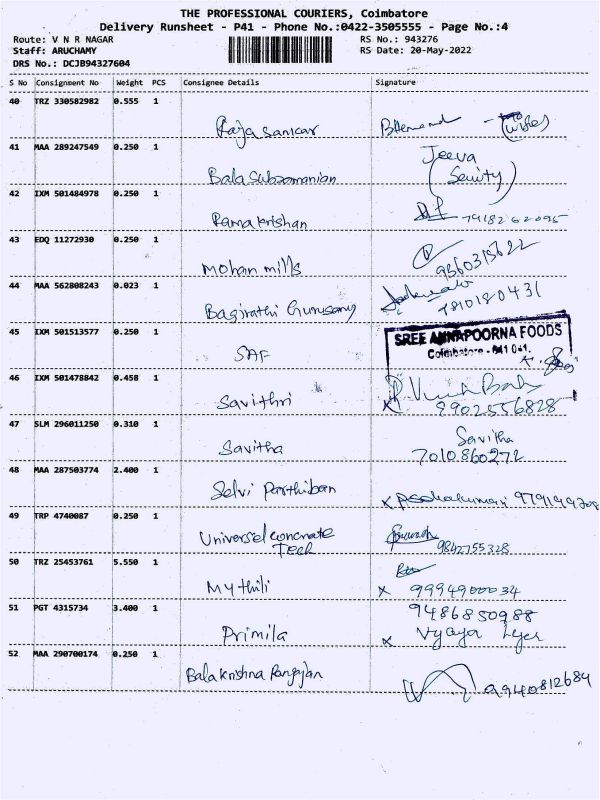 THE PROFESSIONAL COURIERS, Coimbatore
Delivery Runsheet - P41 - Phone No.:0422-3505555 - Page No.:4
Route: V N R NAGAR RS No.: 943276
Staff: ARUCHAMY RS Date: 20-May-2022
DRS No.: DCJB94327604
S No Consignment No Weight PCS Consignee Details Signature
40 TRZ 330582982 0.555 1
Raja Sankar
41 MAA 289247549 0.250 1 Jeeva
Bala Subramanian
42 IXM 501484978 0.250 1
Rama Krishan 74182 62095
43 EDQ 11272930 0.250 1
Mohan mills 9360315622
44 MAA 562808243 0.023 1
Bagirathi Gurusamy 7810180431
45 IXM 501513577 0.250 1 SREE ANNAPOORNA FOODS
SAF Coimbatore - 641 041.
46 IXM 501478842 0.458 1
Savithri 9902556828
47 SLM 296011250 0.310 1 Savitha
Savitha 7010860272
48 MAA 287503774 2.400 1
Selvi Parthiban
49 TRP 4740087 0.250 1
Universel concreate
Tech 9842755328
50 TRZ 25453761 5.550 1
Mythili x 9994900034
51 PGT 4315734 3.400 1 9486850988
Primila x Vyaya Iyer
52 MAA 290700174 0.250 1
Bala Krishna Rangajan 99940812684